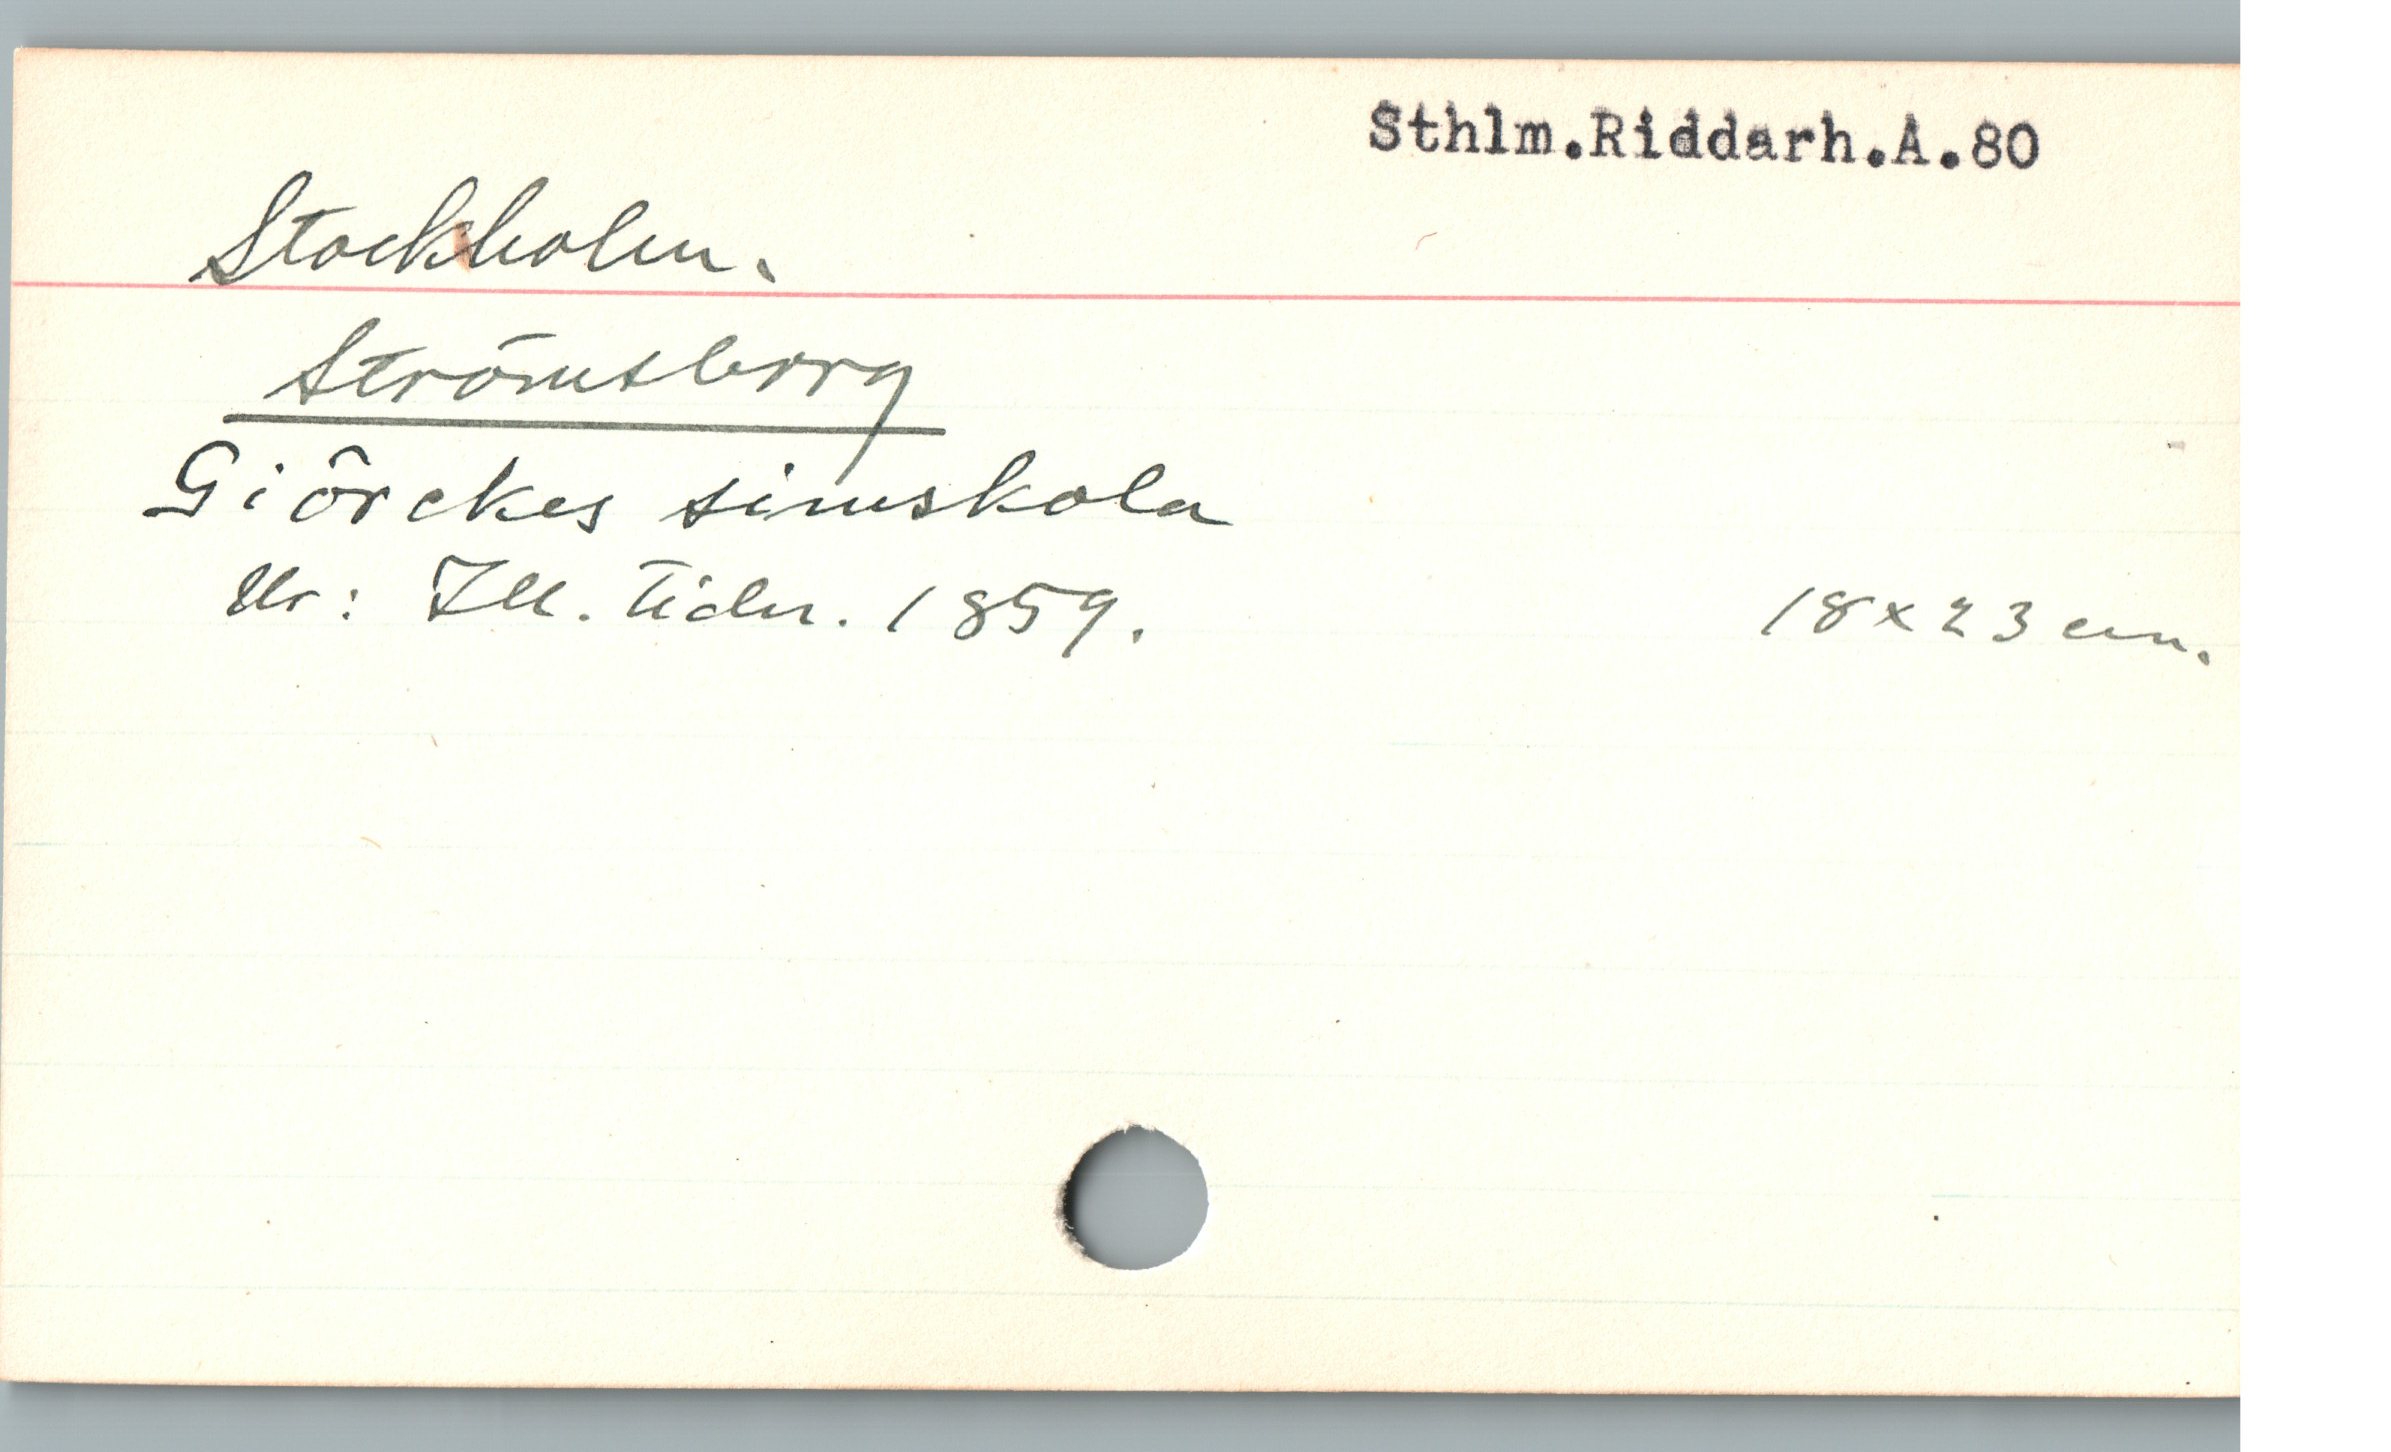 Sthlm.Riddarh.A.80
Stockholm.
Strömsberg
Giörckes simskola
Ur: Ill. Tidn. 1859. 18x23 cm.